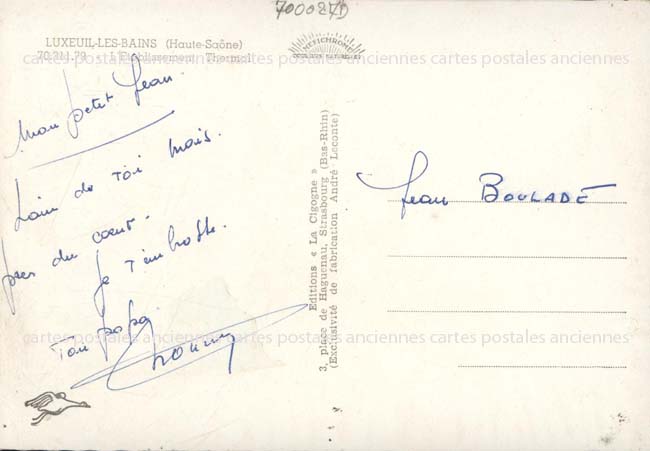 700027D
LUXEUIL-LES-BAINS (Haute-Saône)
70.311.79 - L'Etablissement Thermal
NEFICHROME
cartes postales anciennes cartes postales anciennes
Mon petit Jean.
Loin de toi mais.
pres du coeur.
Je t'embrasse.
Ton papa
Editions « La Cigogne »
3, place de Haguenau, Strasbourg (Bas-Rhin)
(Exclusivité de fabrication André Leconte)
Jean BOULADE
cartes postales anciennes cartes postales anciennes